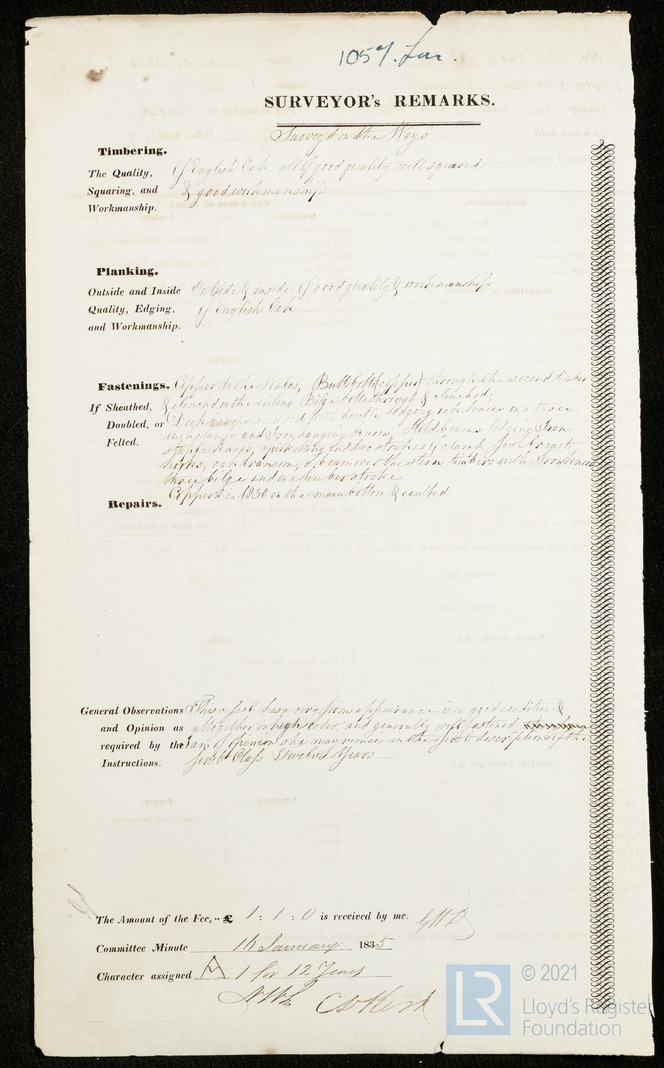 1057. Lon.
SURVEYOR's REMARKS.
Surveyed on the Ways
Timbering.
The Quality, Squaring, and Workmanship.
Of English Oak, all of good quality well squared
& good workmanship
Planking.
Outside and Inside Quality, Edging, and Workmanship.
Outside & inside of good quality & workmanship
of English Oak
Fastenings.
If Sheathed, Doubled, or Felted.
Copper to the Wales, Buttbolts (copper) through the second timber
& clenched on the ceiling Bilgebolts through & clenched,
Deep double lodging oak knees in a three
and Iron hanging knees, Hold beams lodging Iron
staple knees, two strakes of clamp, five breast
hooks, oak transom, beam over the stern timbers with Iron knees
bilge and limber strake
Repairs.
Coppered in 1830 on the main bottom & caulked
General Observations and Opinion as required by the Instructions.
This vessel has a very firm appearance is in good condition &
altogether in high order, and generally well fastened
I am of opinion she may remain in the first description of the
first Class Twelve Years
The Amount of the Fee, -- £ 1 : 1 : 0 is received by me.
Committee Minute 16 January 1835
Character assigned A 1 for 12 Years
© 2021
LR
Lloyd's Register
Foundation